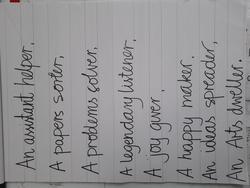 An assistant helper.
A papers sorter.
A problems solver.
A legendary listener.
A joy giver.
A happy maker.
An ideas spreader,
An Arts dweller.